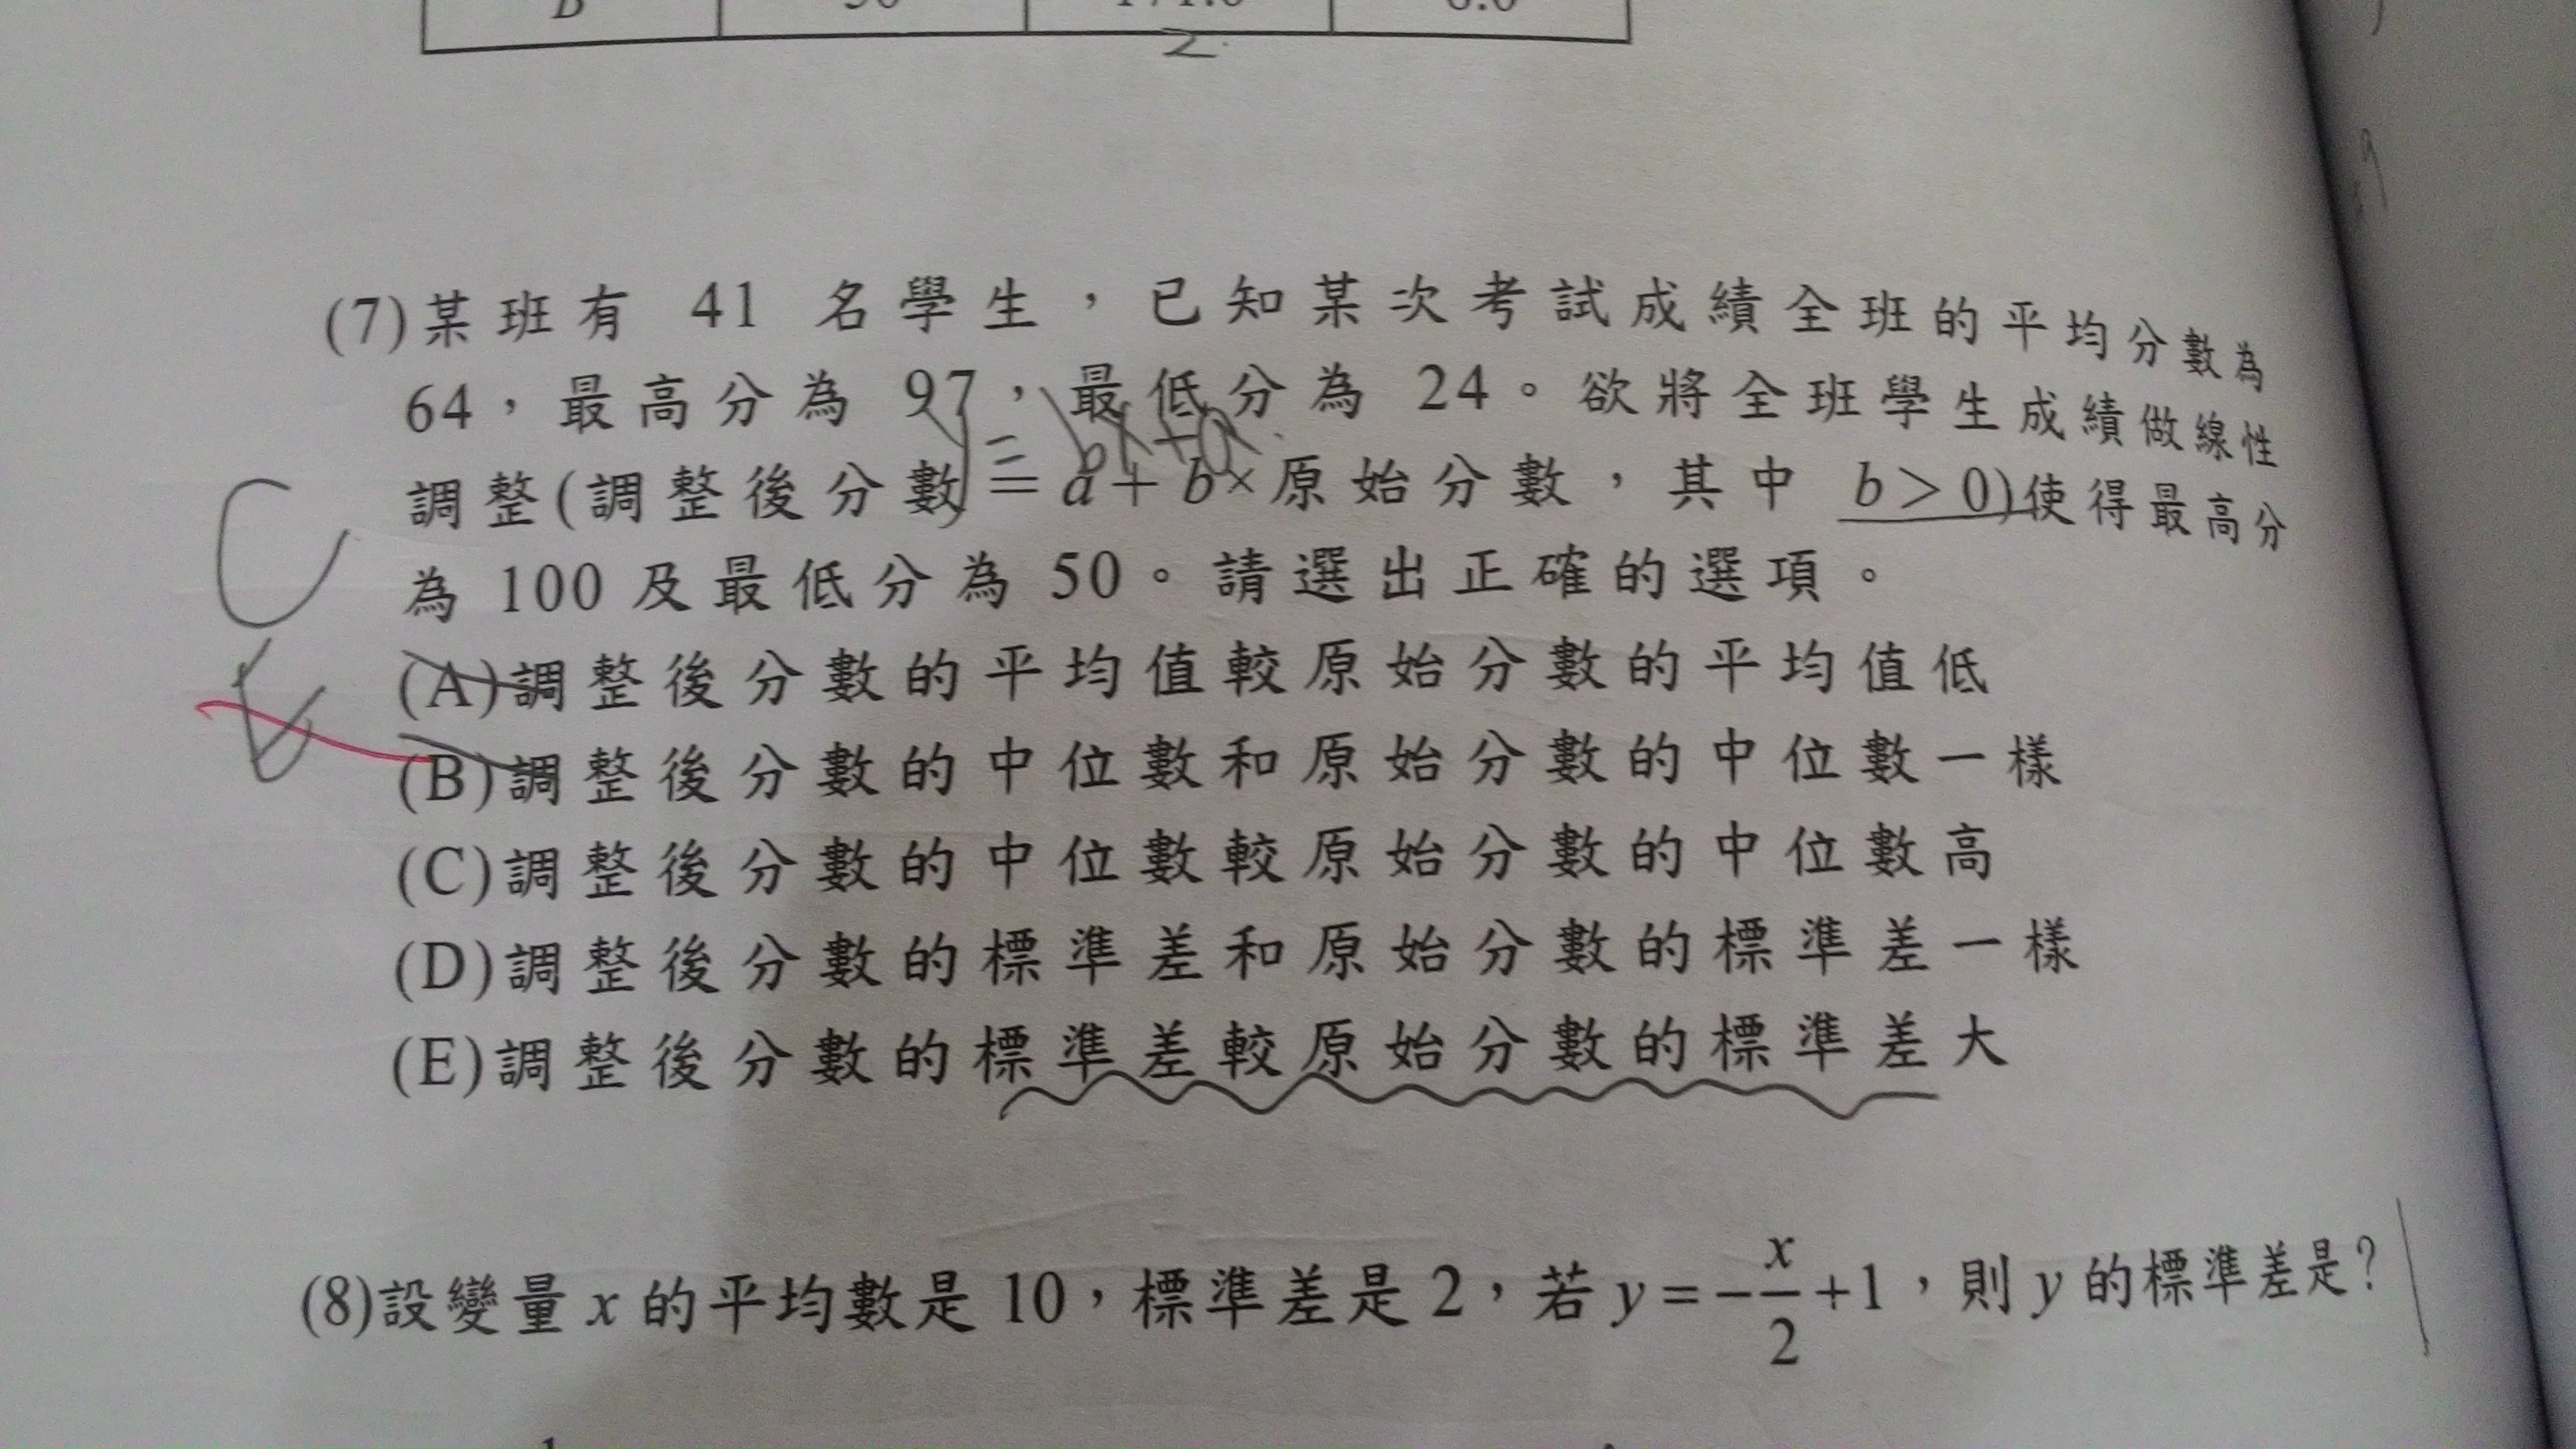 B
(7)某班有 41 名學生，已知某次考試成績全班的平均分數為
64，最高分為 97，最低分為 24。欲將全班學生成績做線性
y = bx+a
調整(調整後分數 = a + b×原始分數，其中 b > 0)使得最高分
C
為 100 及最低分為 50。請選出正確的選項。
(A)調整後分數的平均值較原始分數的平均值低
(B)調整後分數的中位數和原始分數的中位數一樣
(C)調整後分數的中位數較原始分數的中位數高
(D)調整後分數的標準差和原始分數的標準差一樣
(E)調整後分數的標準差較原始分數的標準差大
(8)設變量 x 的平均數是 10，標準差是 2，若 y = −x/2 + 1，則 y 的標準差是？